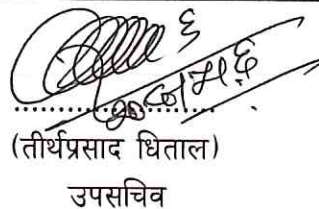 (तीर्थप्रसाद धिताल)
उपसचिव